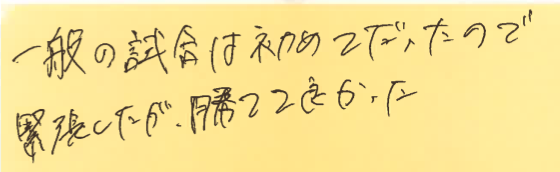 一般の試合は初めてだったので
緊張したが、勝てて良かった